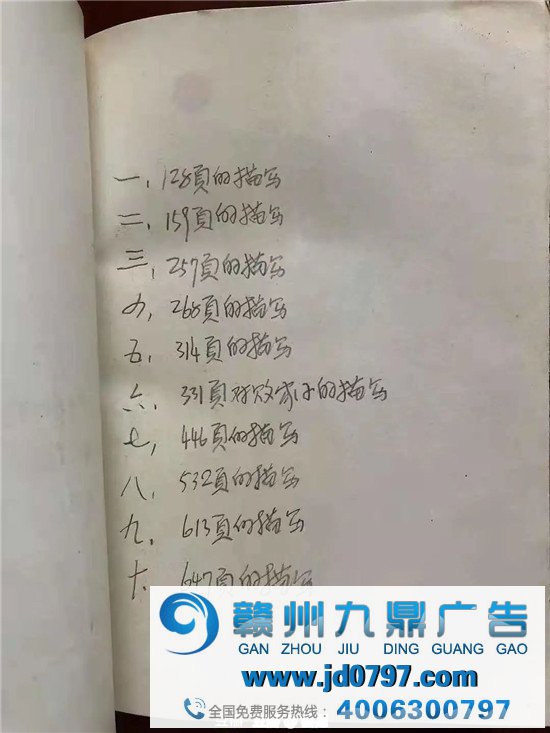 一、128页的描写
二、159页的描写
三、257页的描写
四、268页的描写
五、314页的描写
六、331页对败家子的描写
七、446页的描写
八、532页的描写
九、613页的描写
十、647页的描写
赣州九鼎广告
GAN ZHOU JIU DING GUANG GAO
www.jd0797.com
全国免费服务热线： 4006300797